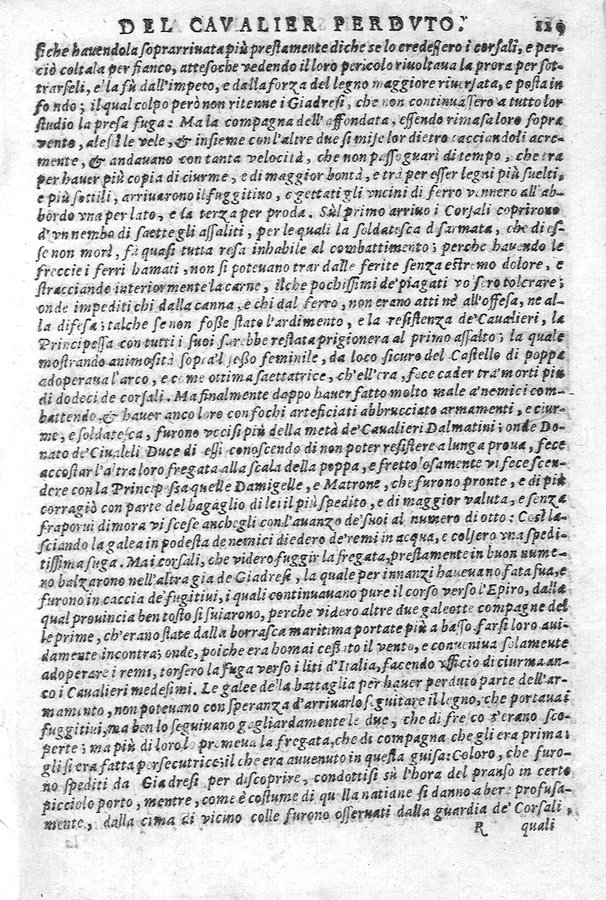 DEL CAVALIER PERDVTO. 129
siche havendola soprarrivata più prestamente di che se lo credessero i corsali, e per-
ciò colta la per fianco, attesoche vedendo il loro pericolo rivoltava la prora per sot-
trarseli, e la fù dall'impeto, e dalla forza del legno maggiore riversata, e posta in
fondo; il qual colpo però non ritenne i Giadresi, che non continuassero a tutto lor
studio la presa fuga: Ma la compagna dell'affondata, essendo rimasa loro sopra
vento, alesti le vele, & insieme con l'altre due si mise lor dietro cacciandoli acre-
mente, & andavano con tanta velocità, che non passo guari di tempo, che tra
per haver più copia di ciurme, e di maggior bontà, e trà per esser legni più suelti,
e più sottili, arrivarono il fuggitivo, e gettati gli uncini di ferro vennero all'ab-
bordo vna per lato, e la terza per proda. Sùl primo arrivo i Corsali coprirono
d'vn nembo di saette gli assaliti, per le quali la soldatesca disarmata, che di es-
se non morì, fù quasi tutta resa inhabile al combattimento; perche havendo le
freccie i ferri hamati, non si potevano trar dalle ferite senza estremo dolore, e
stracciando interiormente la carne, ilche pochissimi de'piagati volsero tolerare;
onde impediti chi dalla canna, e chi dal ferro, non erano atti nè all'offesa, ne al-
la difesa; talche se non fosse stato l'ardimento, e la resistenza de'Cavalieri, la
Principessa con tutti i suoi sarebbe restata prigionera al primo assalto; la quale
mostrando animosità sopra'l sesso feminile, da loco sicuro del Castello di poppa
adoperava l'arco, e come ottima saettatrice, ch'ell'era, fece cader tra'morti più
di dodeci de corsali. Ma finalmente dappo haver fatto molto male a'nemici com-
battendo, & haver anco loro con fochi arteficiati abbrucciato armamenti, e ciur-
me, e soldatesca, furono vccisi più della metà de'Cavalieri Dalmatini; onde Do-
nato de'Civaleli Duce di essi conoscendo di non poter resistere a lunga prova, fece
accostar l'altra loro fregata alla scala della poppa, e frettolosamente vi fece scen-
dere con la Principessa quelle Damigelle, e Matrone, che furono pronte, e di più
corragiò con parte del bagaglio di lei il più spedito, e di maggior valuta, e senza
fraporui dimora vi scese anchegli con l'avanzo de'suoi al numero di otto: Così la-
sciando la galea in podesta de nemici diedero de'remi in acqua, e colsero vna spedi-
tissima fuga. Ma i corsali, che videro fuggir la fregata, prestamente in buon nume-
no balzarono nell'altra gia de Giadresi, la quale per innanzi havevano fata sua, e
furono in caccia de'fugitivi, i quali continuavano pure il corso verso l'Epiro, dalla
qual provincia ben tosto si suiarono, perche videro altre due galeotte compagne del
le prime, ch'erano state dalla borrasca maritima portate più a basso farsi loro aui-
damente incontra; onde, poiche era homai cessato il vento, e conveniva solamente
adoperare i remi, torsero la fuga verso i liti d'Italia, facendo vfficio di ciurma an-
co i Cavalieri medesimi. Le galee della battaglia per haver perduto parte dell'ar-
mamento, non potevano con speranza d'arrivarlo seguitare il legno, che portava i
fuggitivi, ma ben lo seguivano gagliardamente le due, che di fresco s'erano sco-
perte; ma più di loro lo premeva la fregata, che di compagna che gli era prima;
gli si era fatta persecutrice; il che era avvenuto in questa guisa: Coloro, che furo-
no spediti da Giadresi per discoprire, condottisi sù l'hora del pranso in certo
picciolo porto, mentre, come è costume di quella natione si danno a bere profusa-
mente, dalla cima di vicino colle furono osservati dalla guardia de' Corsali,
R quali